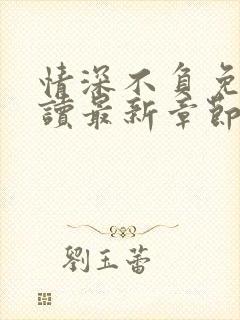 情深不負免
讀最新章節
劉玉蕾